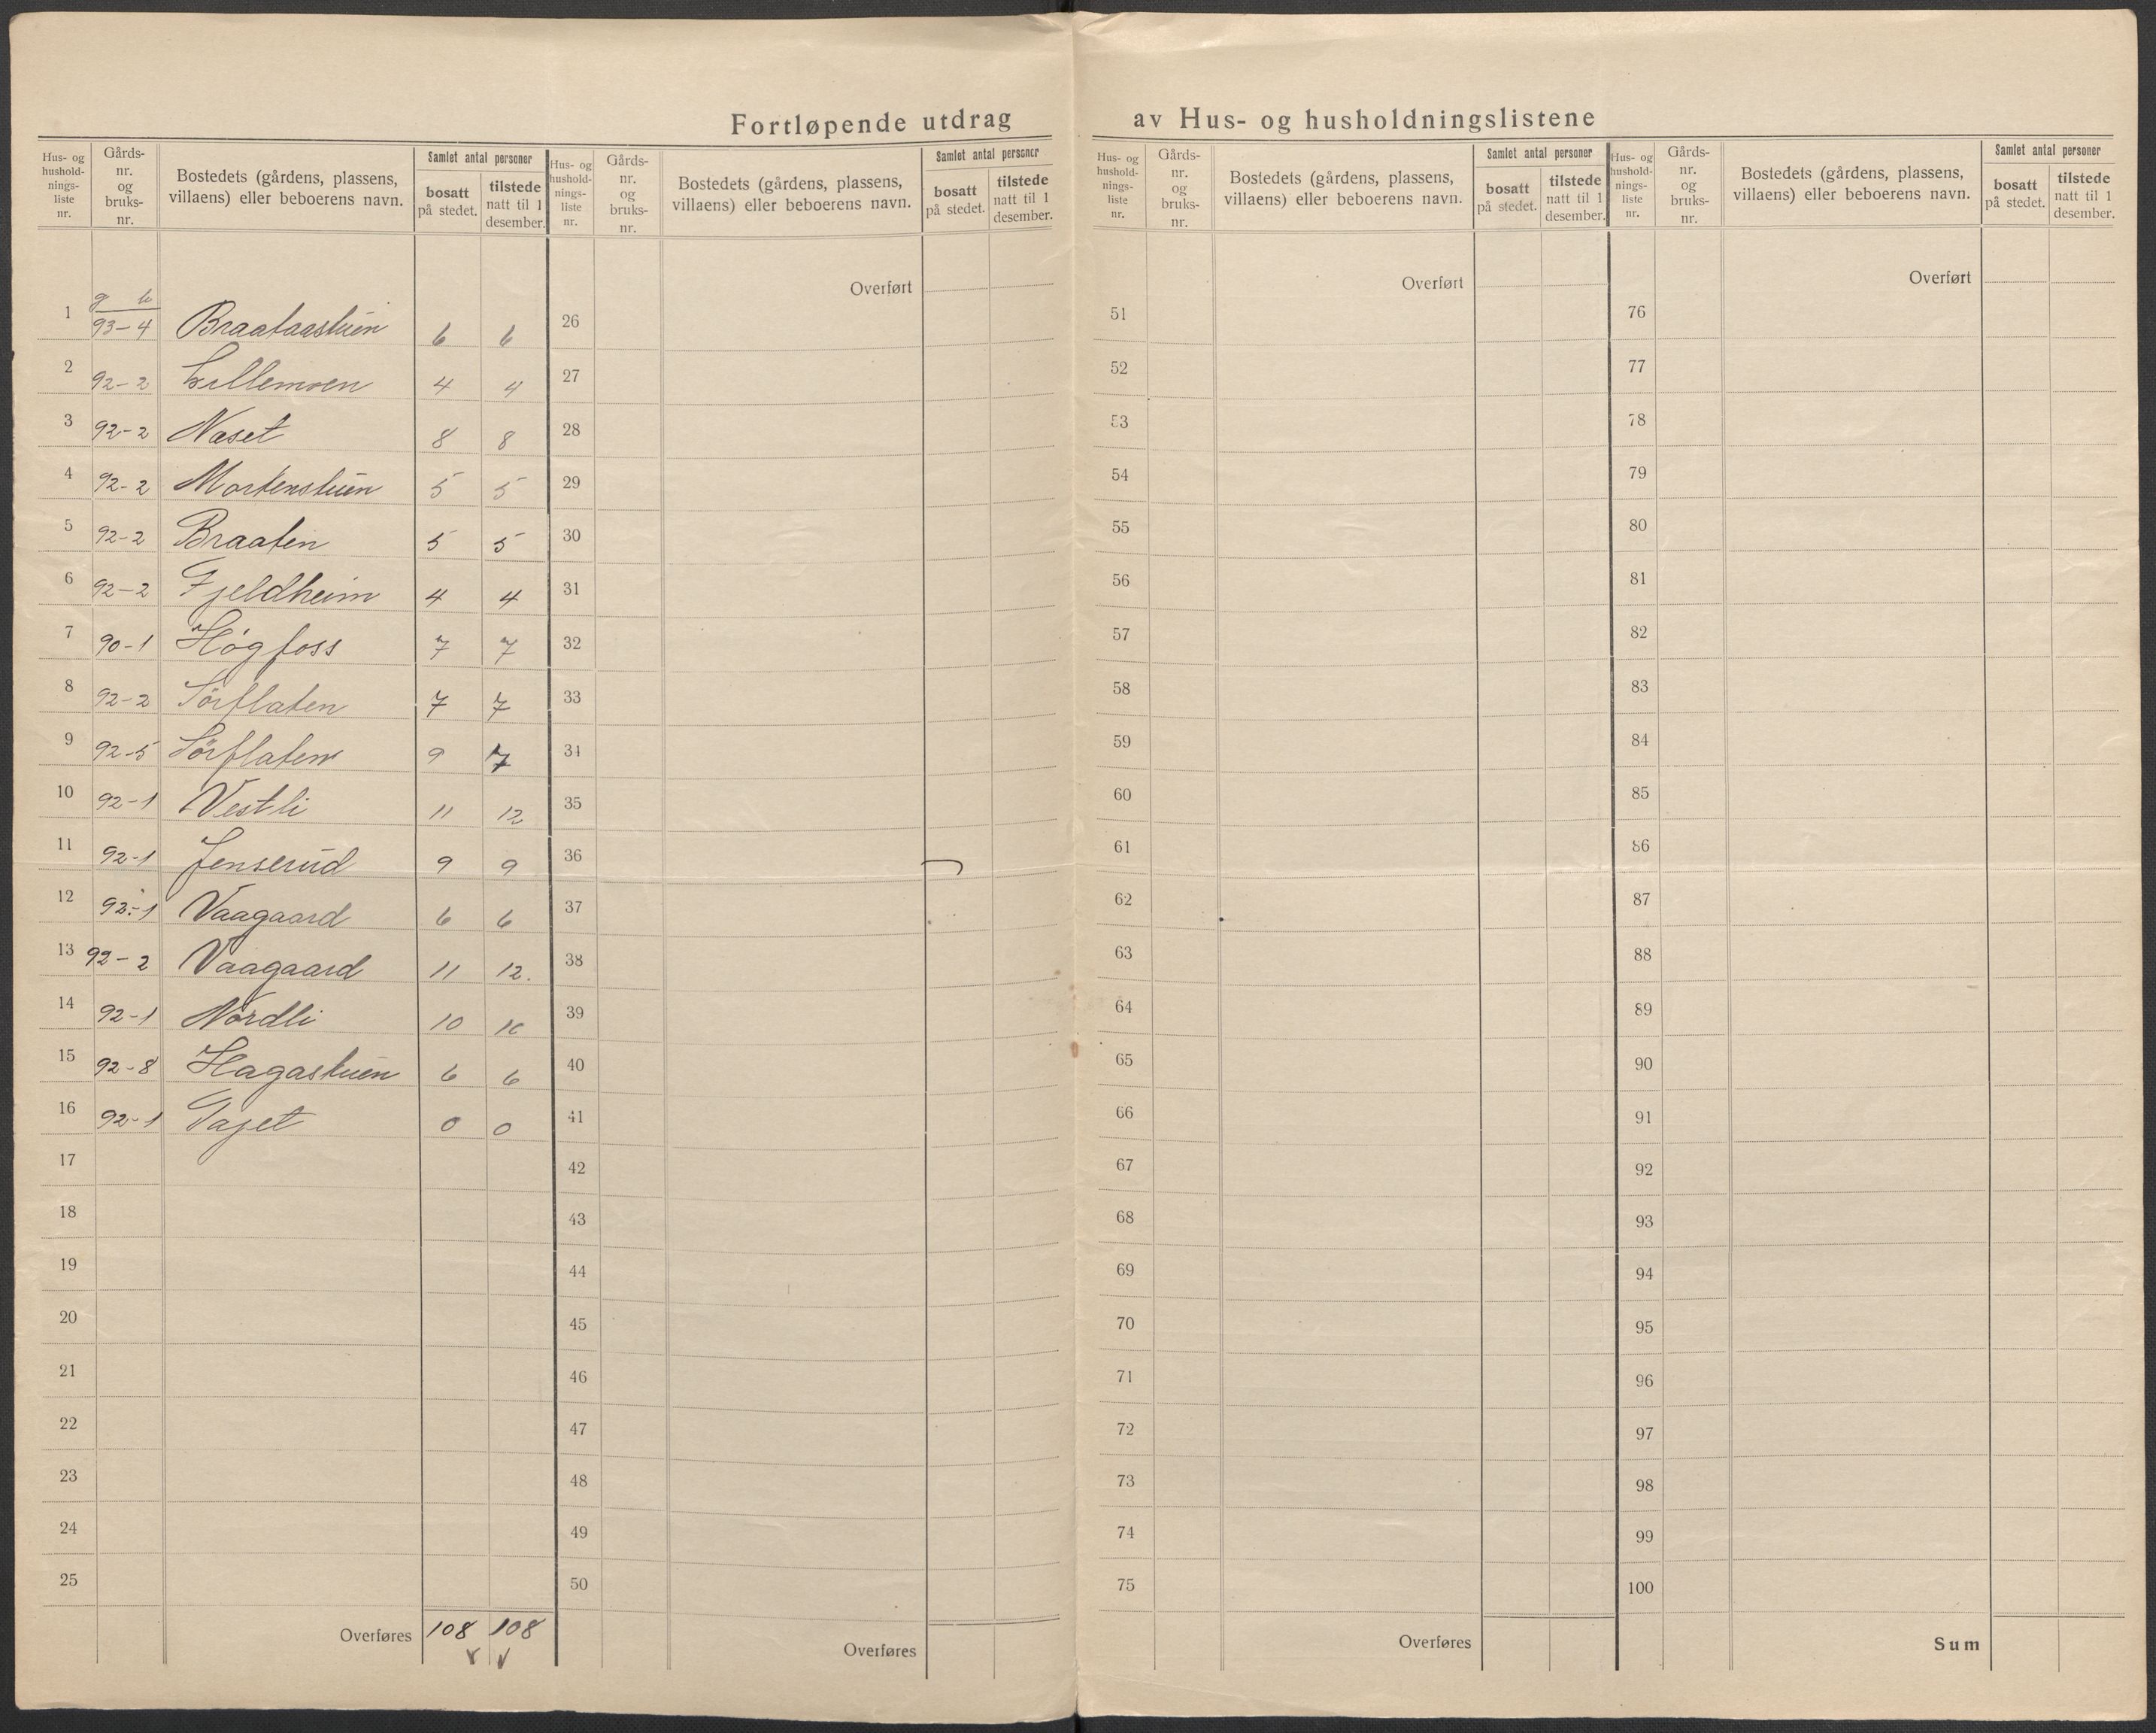 Fortløpende utdrag av Hus- og husholdningslistene
Hus- og hushold-nings-liste nr. | Gårds-nr. og bruks-nr. | Bostedets (gårdens, plassens, villaens) eller beboerens navn. | Samlet antal personer | bosatt på stedet. | tilstede natt til 1 desember.
g b
1 93-4 Braataastuen 6 6
2 92-2 Lillemoen 4 4
3 92-2 Næset 8 8
4 92-2 Mortenstuen 5 5
5 92-2 Braaten 5 5
6 92-2 Fjeldheim 4 4
7 90-1 Høgfoss 7 7
8 92-2 Sörflaten 7 7
9 92-5 Sörflaten 9 7
10 92-1 Vestli 11 12
11 92-1 Jenserud 9 9
12 92-1 Vaagaard 6 6
13 92-2 Vaagaard 11 12.
14 92-1 Nordli 10 10
15 92-8 Hagastuen 6 6
16 92-1 0 0
17
18
19
20
21
22
23
24
25
Overføres 108 108
Hus- og hushold-nings-liste nr. | Gårds-nr. og bruks-nr. | Bostedets (gårdens, plassens, villaens) eller beboerens navn. | Samlet antal personer | bosatt på stedet. | tilstede natt til 1 desember.
Overført
26
27
28
29
30
31
32
33
34
35
36
37
38
39
40
41
42
43
44
45
46
47
48
49
50
Overføres
Hus- og hushold-nings-liste nr. | Gårds-nr. og bruks-nr. | Bostedets (gårdens, plassens, villaens) eller beboerens navn. | Samlet antal personer | bosatt på stedet. | tilstede natt til 1 desember.
Overført
51
52
53
54
55
56
57
58
59
60
61
62
63
64
65
66
67
68
69
70
71
72
73
74
75
Overføres
Hus- og hushold-nings-liste nr. | Gårds-nr. og bruks-nr. | Bostedets (gårdens, plassens, villaens) eller beboerens navn. | Samlet antal personer | bosatt på stedet. | tilstede natt til 1 desember.
Overført
76
77
78
79
80
81
82
83
84
85
86
87
88
89
90
91
92
93
94
95
96
97
98
99
100
Sum